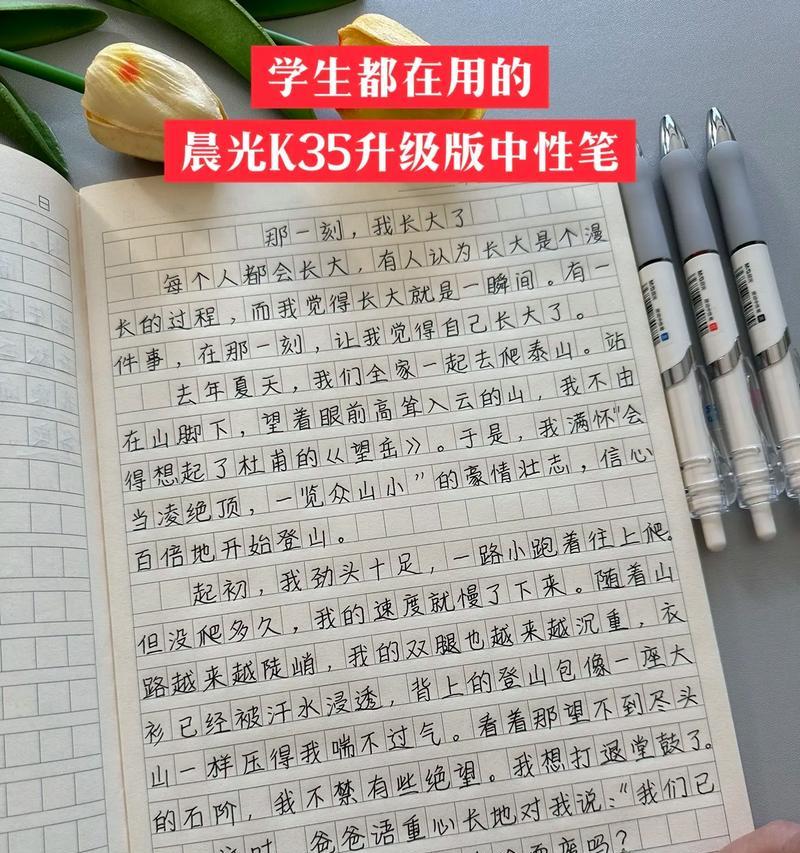 学生都在用的
晨光K35升级版中性笔
那一刻，我长大了
每个人都会长大，有人认为长大是个漫
长的过程，而我觉得长大就是一瞬间。有一
件事，在那一刻，让我觉得自己长大了。
去年夏天，我们全家一起去爬泰山。站
在山脚下，望着眼前高耸入云的山，我不由
得想起了杜甫的《望岳》。于是，我满怀“会
当凌绝顶，一览众山小”的豪情壮志，信心
百倍地开始登山。
起初，我劲头十足，一路小跑着往上爬。
但没爬多久，我的速度就慢了下来。随着山
路越来越陡峭，我的双腿也越来越沉重，衣
衫已经被汗水浸透，背上的登山包像一座大
山一样压得我喘不过气。看着那望不到尽头
的石阶，我不禁有些绝望。我想打退堂鼓了。
这时，爸爸语重心长地对我说：“我们已